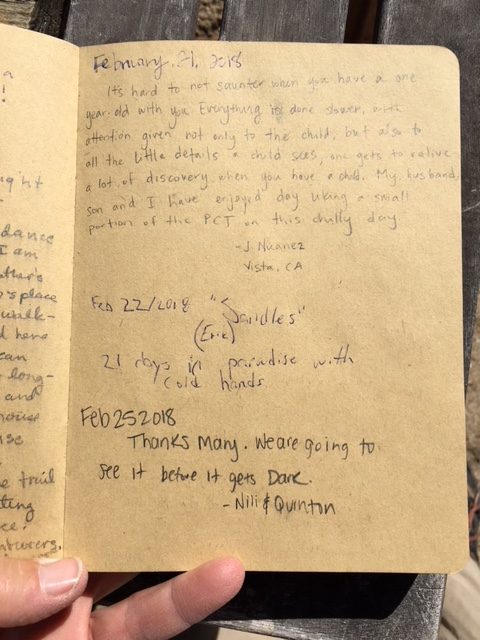 a
!
ight
dance
I am
ather's
o's place
walk-
d here
can
long-
and
house
use
e trail
ting
ce.
nturers.
February, 21, 2018
It's hard to not saunter when you have a one
year-old with you. Everything is done slower, with
attention given not only to the child, but also to
all the little details a child sees, one gets to relive
a lot of discovery when you have a child. My husband,
son and I have enjoyed day hiking a small
portion of the PCT on this chilly day
- J. Nuanez
Vista, CA
Feb 22/2018 "Sandles"
(Erik)
21 days in paradise with
cold hands
Feb 25 2018
Thanks Many. We are going to
see it before it gets Dark.
- Nili & Quinton